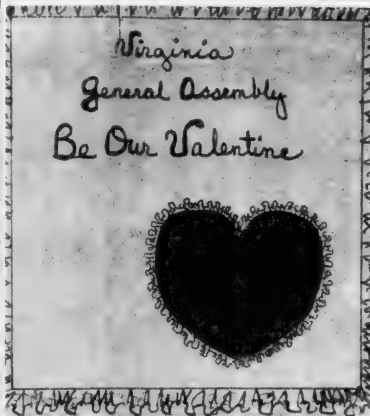 Virginia
General Assembly
Be Our Valentine